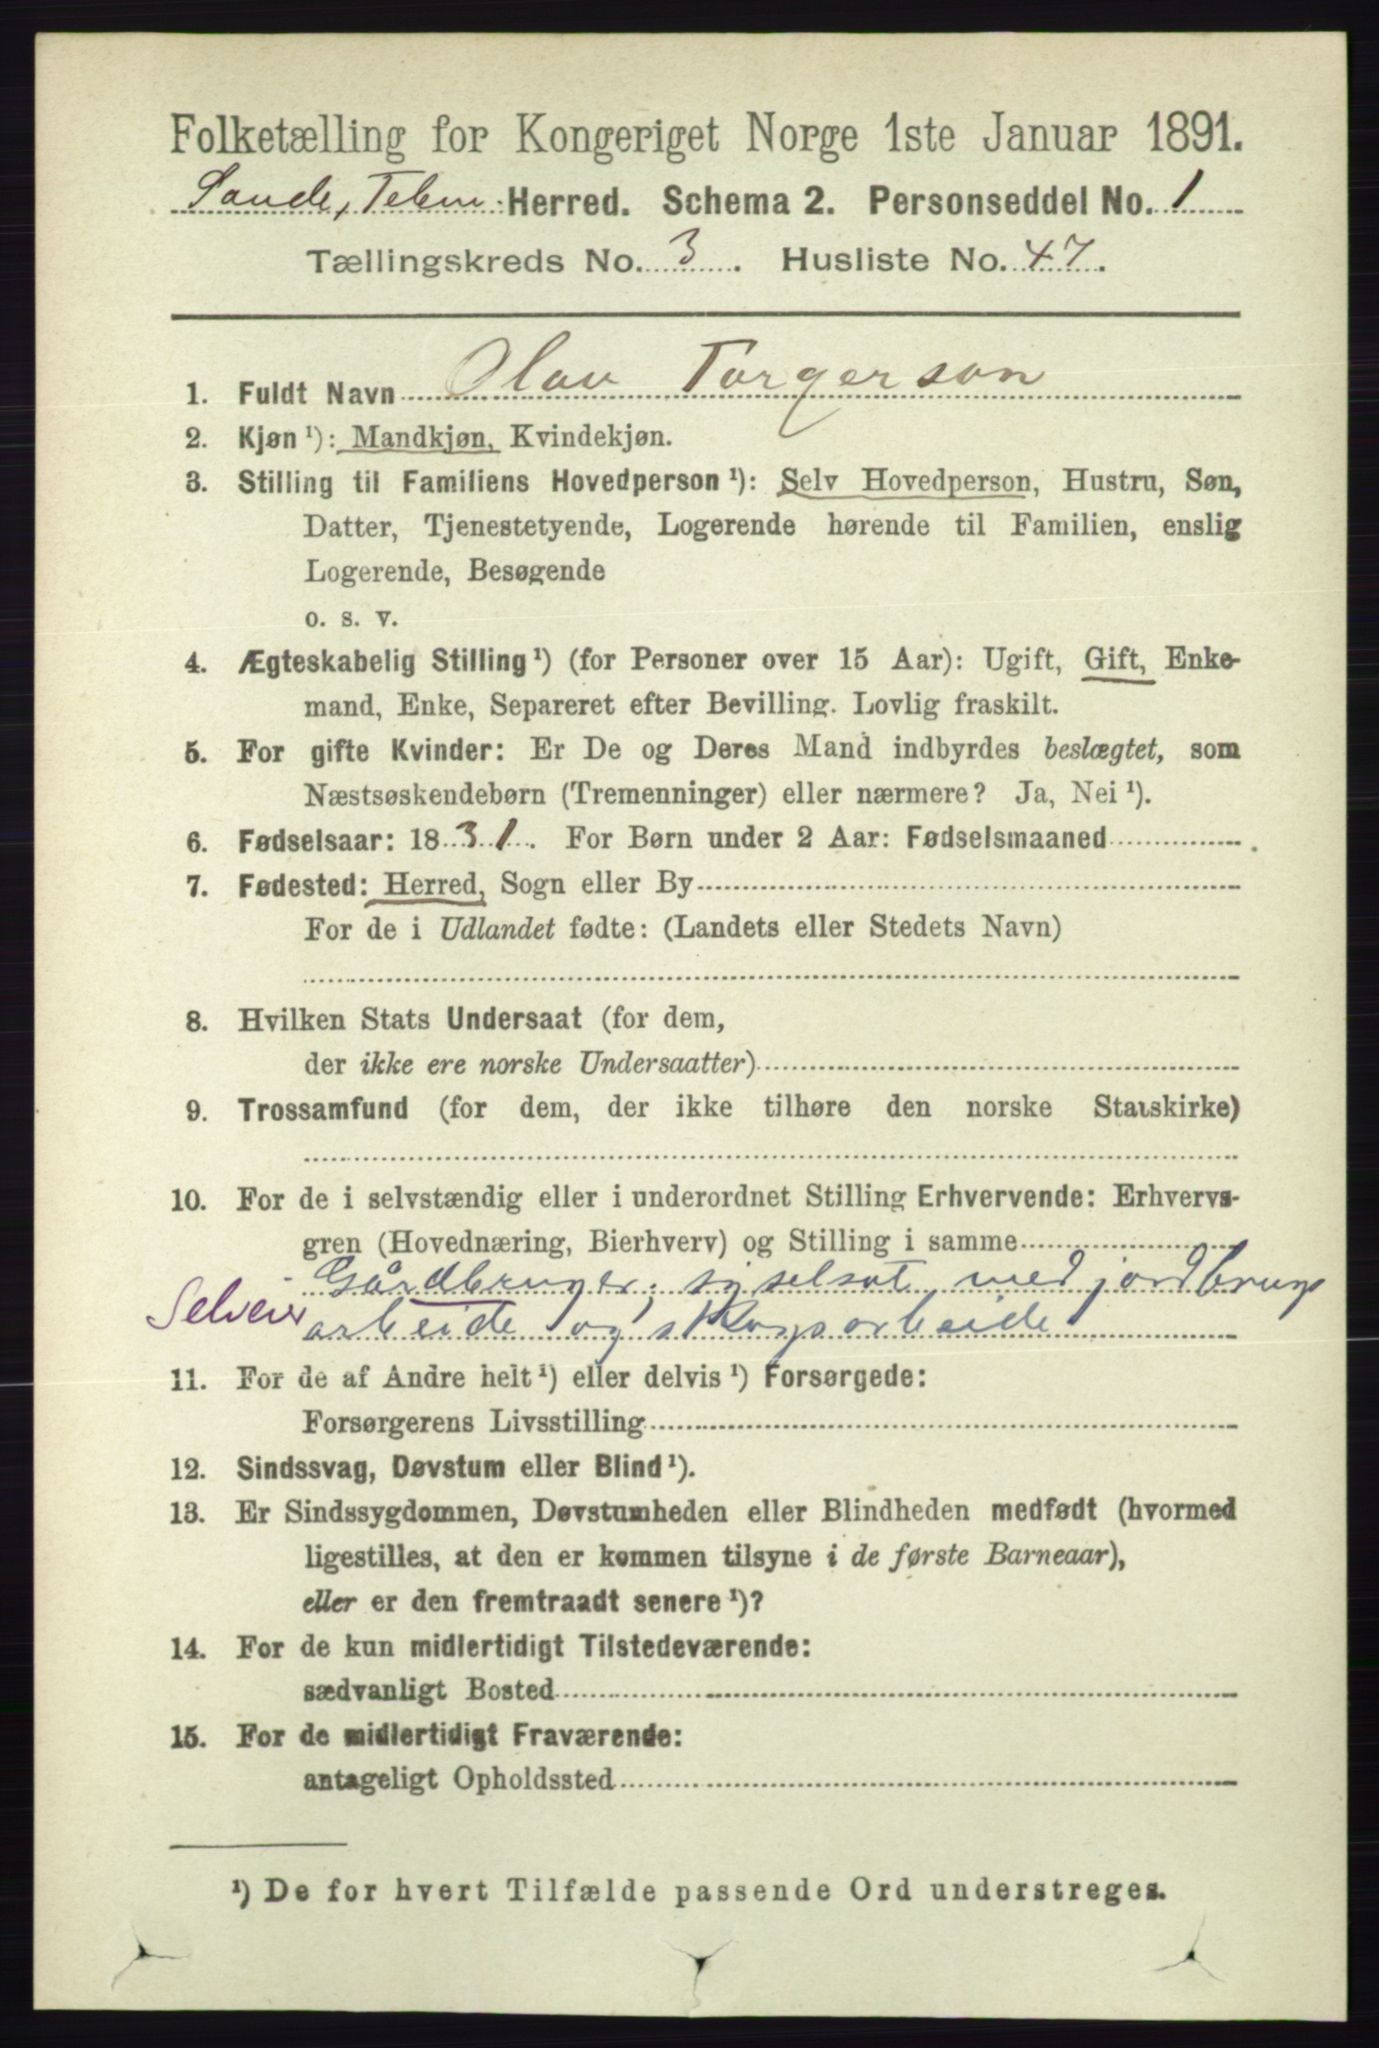 Folketælling for Kongeriget Norge 1ste Januar 1891.
Saude, Telem. Herred. Schema 2. Personseddel No. 1
Tællingskreds No. 3. Husliste No. 47.
1. Fuldt Navn Olav Torgerson
2. Kjøn ¹): Mandkjøn, Kvindekjøn.
3. Stilling til Familiens Hovedperson ¹): Selv Hovedperson, Hustru, Søn,
Datter, Tjenestetyende, Logerende hørende til Familien, enslig
Logerende, Besøgende
o. s. v.
4. Ægteskabelig Stilling ¹) (for Personer over 15 Aar): Ugift, Gift, Enke-
mand, Enke, Separeret efter Bevilling. Lovlig fraskilt.
5. For gifte Kvinder: Er De og Deres Mand indbyrdes beslægtet, som
Næstsøskendebørn (Tremenninger) eller nærmere? Ja, Nei ¹).
6. Fødselsaar: 1831. For Børn under 2 Aar: Fødselsmaaned
7. Fødested: Herred, Sogn eller By
For de i Udlandet fødte: (Landets eller Stedets Navn)
8. Hvilken Stats Undersaat (for dem,
der ikke ere norske Undersaatter)
9. Trossamfund (for dem, der ikke tilhøre den norske Statskirke)
10. For de i selvstændig eller i underordnet Stilling Erhvervende: Erhvervs-
gren (Hovednæring, Bierhverv) og Stilling i samme
Gårdbruger, syselsat med jordbrugs
Selveier arbeide og skogsarbeide
11. For de af Andre helt ¹) eller delvis ¹) Forsørgede:
Forsørgerens Livsstilling
12. Sindssvag, Døvstum eller Blind ¹).
13. Er Sindssygdommen, Døvstumheden eller Blindheden medfødt (hvormed
ligestilles, at den er kommen tilsyne i de første Barneaar),
eller er den fremtraadt senere ¹)?
14. For de kun midlertidigt Tilstedeværende:
sædvanligt Bosted
15. For de midlertidigt Fraværende:
antageligt Opholdssted
¹) De for hvert Tilfælde passende Ord understreges.